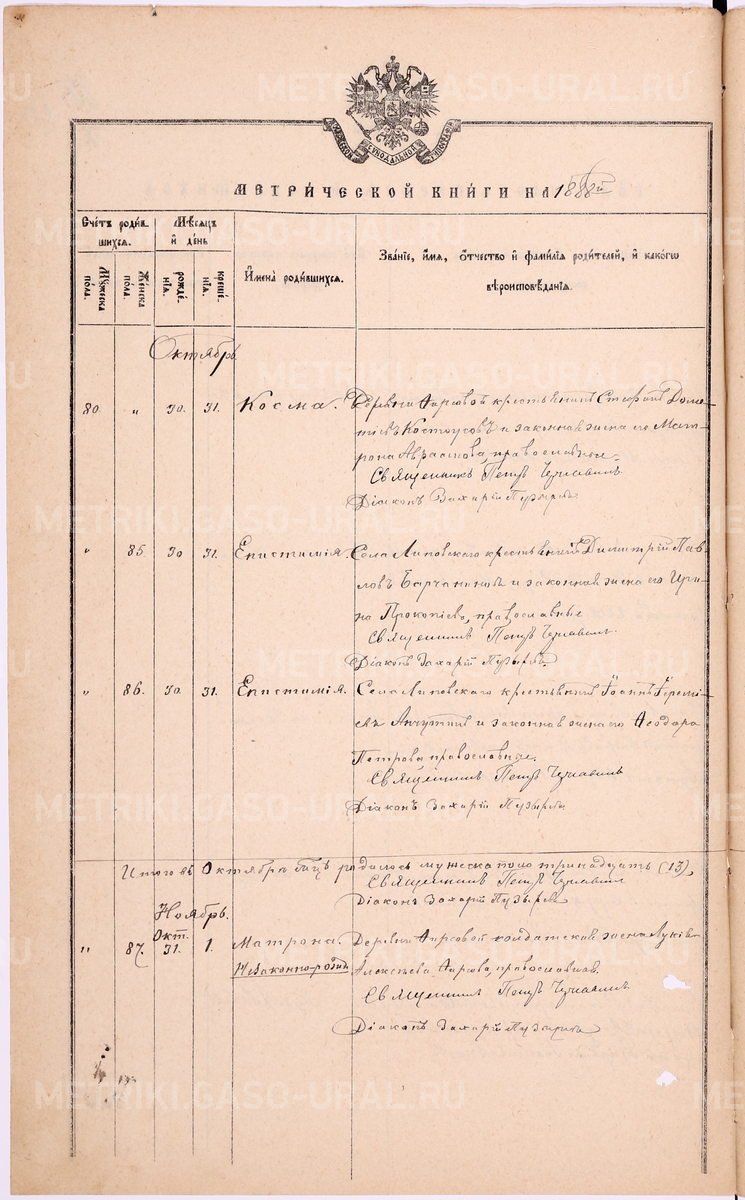 МЕТРИ́ЧЕСКОЙ КНИ́ГИ НА 1888й
Сче́тъ роди́в-
шихся.
Му́жеска по́ла.
Же́нска по́ла.
Мѣ́сяцъ
и́ де́нь
рожде́-
нія.
креще́-
нія.
И҆мена̀ роди́вшихся.
Зва́ніе, и҆́мя, ѻ҆́тчество и҆ фами́лія роди́телей, и҆ како́гѡ
вѣроисповѣ́данія.
Октябрь
80. „ 30. 31. Косма. Деревни крестьянинъ Стефанъ Доме-
тіевъ Костоусовъ и законная жена его Мат-
рона православные
Священникъ Петръ
Діаконъ Захарій Пузыревъ
„ 85. 30 31. Епистимія. Села Липовскаго крестьянинъ Димитрій Пав-
ловъ и законная жена его Ири-
на Прокопіева, православные
Священникъ Петръ
Діаконъ Захарій Пузыревъ.
„ 86. 30. 31. Епистимія. Села Липовскаго крестьянинъ Іоаннъ Іереміе-
въ и законная жена его Ѳеодора
Петрова православные.
Священникъ Петръ
Діаконъ Захарій Пузыревъ
Итого въ Октябрѣ м-цѣ родилось мужеска пола тринадцать (13)
Священникъ Петръ
Діаконъ Захарій Пузыревъ
Ноябрь.
Окт.
„ 87. 31. 1. Матрона. Деревни солдатская жена
Незаконно-рожд. Алексѣева православная.
Священникъ Петръ
Діаконъ Захарій Пузыревъ
METRIKI.GASO-URAL.RU